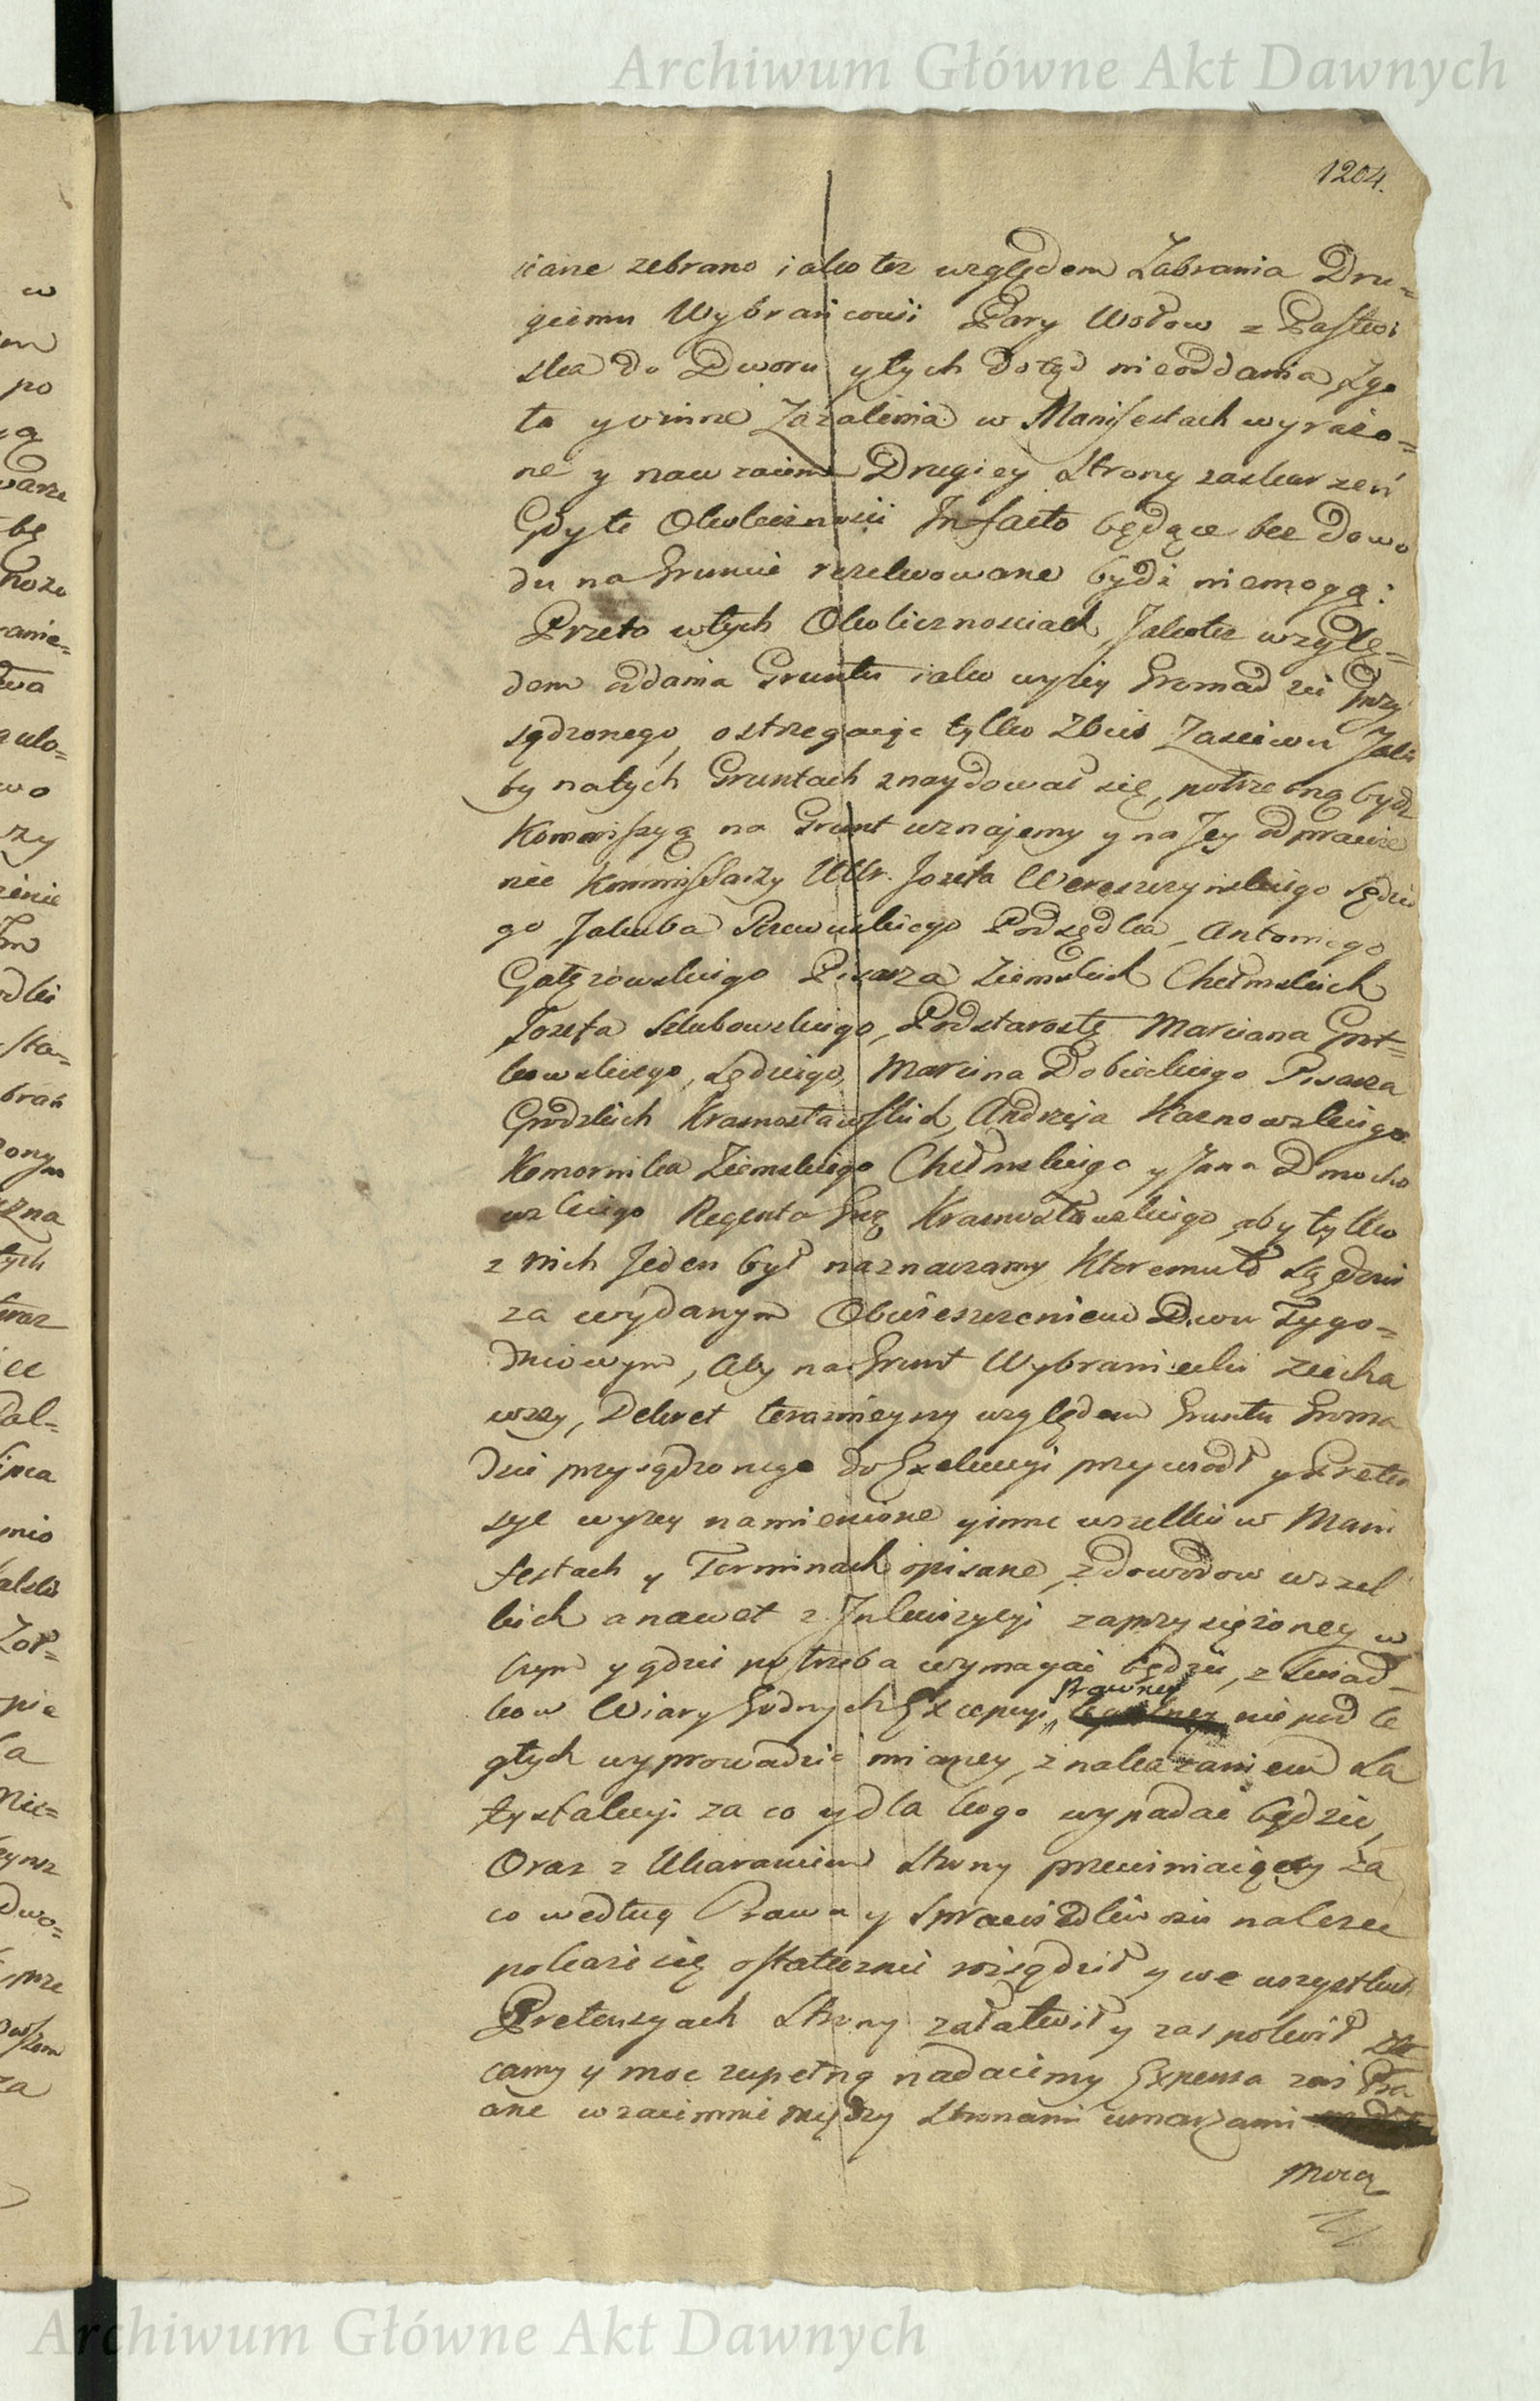 Archiwum Główne Akt Dawnych
1204.
ciane zebrano iako tez względem Zabrania Dru=
giemu Wybrańcowi Pary Wołow z Pastwi
ska do Dworu y tych dotąd nieoddania, Zgo
ła y inne Zażalenia w Manifestach wyrażo=
ne y nawzaiem Drugiey Strony zaskarzeń
Gdy te Okoliczności In facto będące bez dowo
du na Gruncie rezolwowane bydź niemogą:
Przeto w tych Okolicznosciach Jakotez wzglę=
dem oddania Gruntu iako wyżey Gromadzie przy
sądzonego, ostrzegaiąc tylko Zbior Zasiewu Jaki
by na tych Gruntach znaydował się, potrzebną bydź
Kommissyą na Grunt uznajemy y na Jey odprawie
nie Kommissarzy UUr. Jozefa Wereszczynskiego Sędzie
go Jakuba Rzewuskiego Podsędka, Antoniego
Gałęzowskiego Pisarza Ziemskich Chełmskich
Jozefa Szlubowskiego, Podstarostę Marciana Gort=
kowskiego, Sędziego, Marcina Dobieckiego Pisarza
Grodzkich Krasnostawskich, Andrzeja Karnowskiego
Komornika Ziemskiego Chełmskiego y Jana Dmocho
wskiego Regenta Krasnostawskiego aby tylko
z nich Jeden był naznaczamy Ktoremu to Sędziu
za wydanym Obwieszczeniem Dwu Tygo=
dniowym, Aby na Grunt Wybraniecki ziecha
wszy, Dekret teraznieyszy względem Gruntu Groma
dzie przysądzonego do Exekucyi przywiodł y Preten
sye wyzey namienione y inne wszelkie w Mani
festach y Terminach opisane, z dowodow wszel
kich a nawet z Inkwizycyi zaprzysiężoney w
czym y gdzie potrzeba wymagać będzie, z Swiad=
kow Wiary Godnych Excepcyi Prawney niepodle
głych wyprowadzic mianey, z nakazaniem Sa
tysfakcyi za co y dla kogo wypadać będzie,
Oraz z Ukaraniem Strony przewiniaiącey za
co według Prawa y Sprawiedliwosci nalezec
pokaże się ostatecznie rozsądził y we wszystkich
Pretensyach Strony załatwił y zaspokoił Zle
camy y moc zupełną nadaiemy Expensa zas Pra
wne wzaiemnie między Stronami umarzamy
Mocą
Archiwum Główne Akt Dawnych